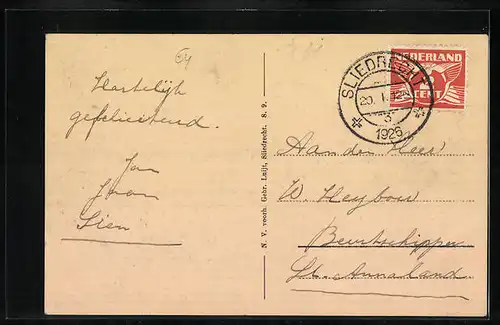 64
Hartelijk
gefeliciteerd.
Jan
Sien
N. V. voorh. Gebr. Luijt, Sliedrecht. S. 9.
SLIEDRECHT
20. 1. 12
3
1926
NEDERLAND
CENT
Aan den Heer
W. Heyboer
Beurtschipper
St. Annaland